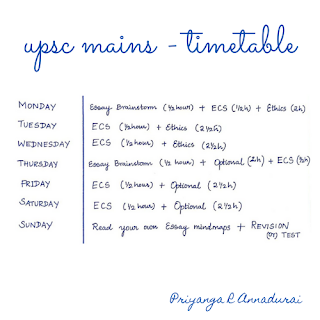 upsc mains - timetable
MONDAY Essay Brainstorm (½ hour) + ECS (½h) + Ethics (2h)
TUESDAY ECS (½ hour) + Ethics (2½h)
WEDNESDAY ECS (½ hour) + Ethics (2½h)
THURSDAY Essay Brainstorm (½ hour) + Optional (2h) + ECS (½h)
FRIDAY ECS (½ hour) + Optional (2½h)
SATURDAY ECS (½ hour) + Optional (2½h)
SUNDAY Read your own Essay mindmaps + REVISION
(or) TEST
Priyanga R Annadurai